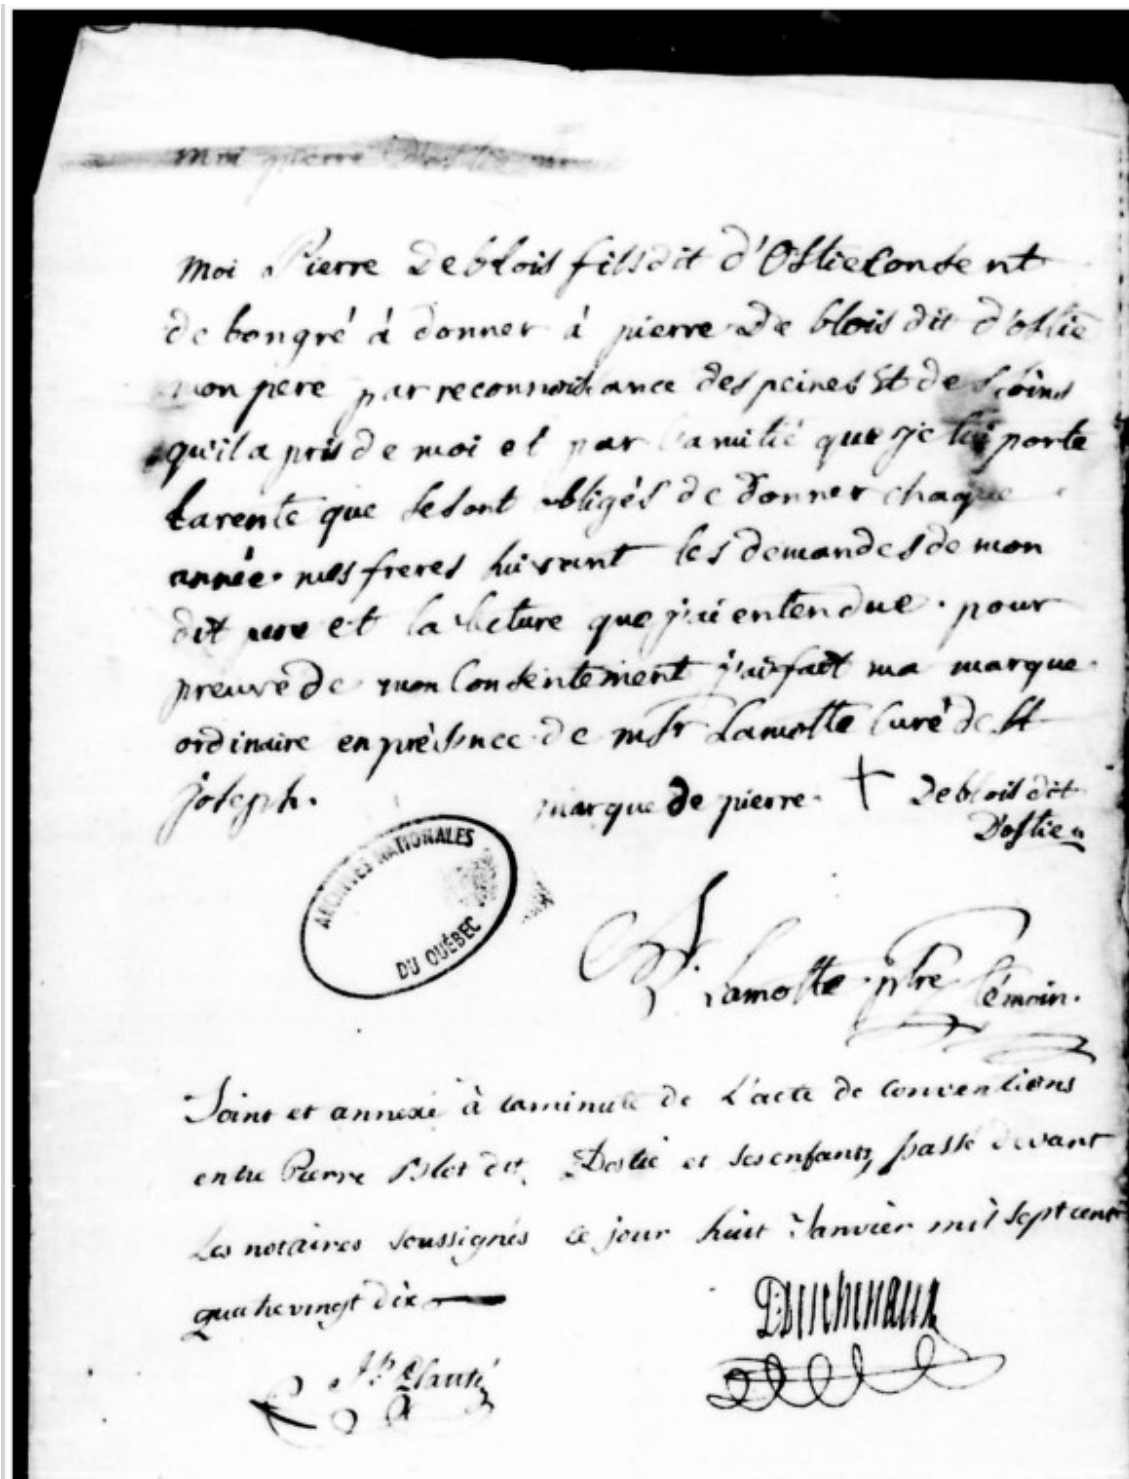 Moi pierre
Moi Pierre Deblois fils dit d'Ostie consent
de bongré à donner à pierre De blois dit d'ostie
mon pere par reconnoissance des peines Et de soins
qu'il a pris de moi et par l'amitié que je lui porte
la rente que se sont obligés de donner chaque
année mes freres suivant les demandes de mon
dit pere et la lecture que j'ai entendue. pour
preuve de mon Consentement j'ai fait ma marque
ordinaire en présence de msr Lamotte Curé de St
joseph. marque de pierre + Deblois dit
D'ostie
ARCHIVES NATIONALES
DU QUÉBEC
Lamotte ptre témoin.
Joint et annexé à la minute de L'acte de conventions
entre Pierre Blot dit Destié et ses enfants, passé devant
Les notaires soussignés ce jour huit Janvier mil sept cent
quatre vingt dix